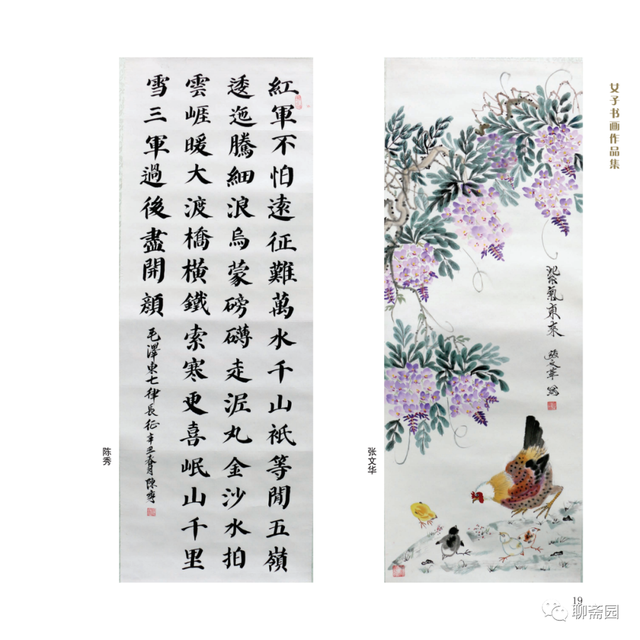 女子书画作品集
紅軍不怕遠征難萬水千山衹等閒五嶺
逶迤騰細浪烏蒙磅礴走泥丸金沙水拍
雲崕暖大渡橋橫鐵索寒更喜岷山千里
雪三軍過後盡開顏
毛澤東七律長征辛丑春月陳秀
陈秀
紫氣東來
張文華寫
张文华
19
聊斋园